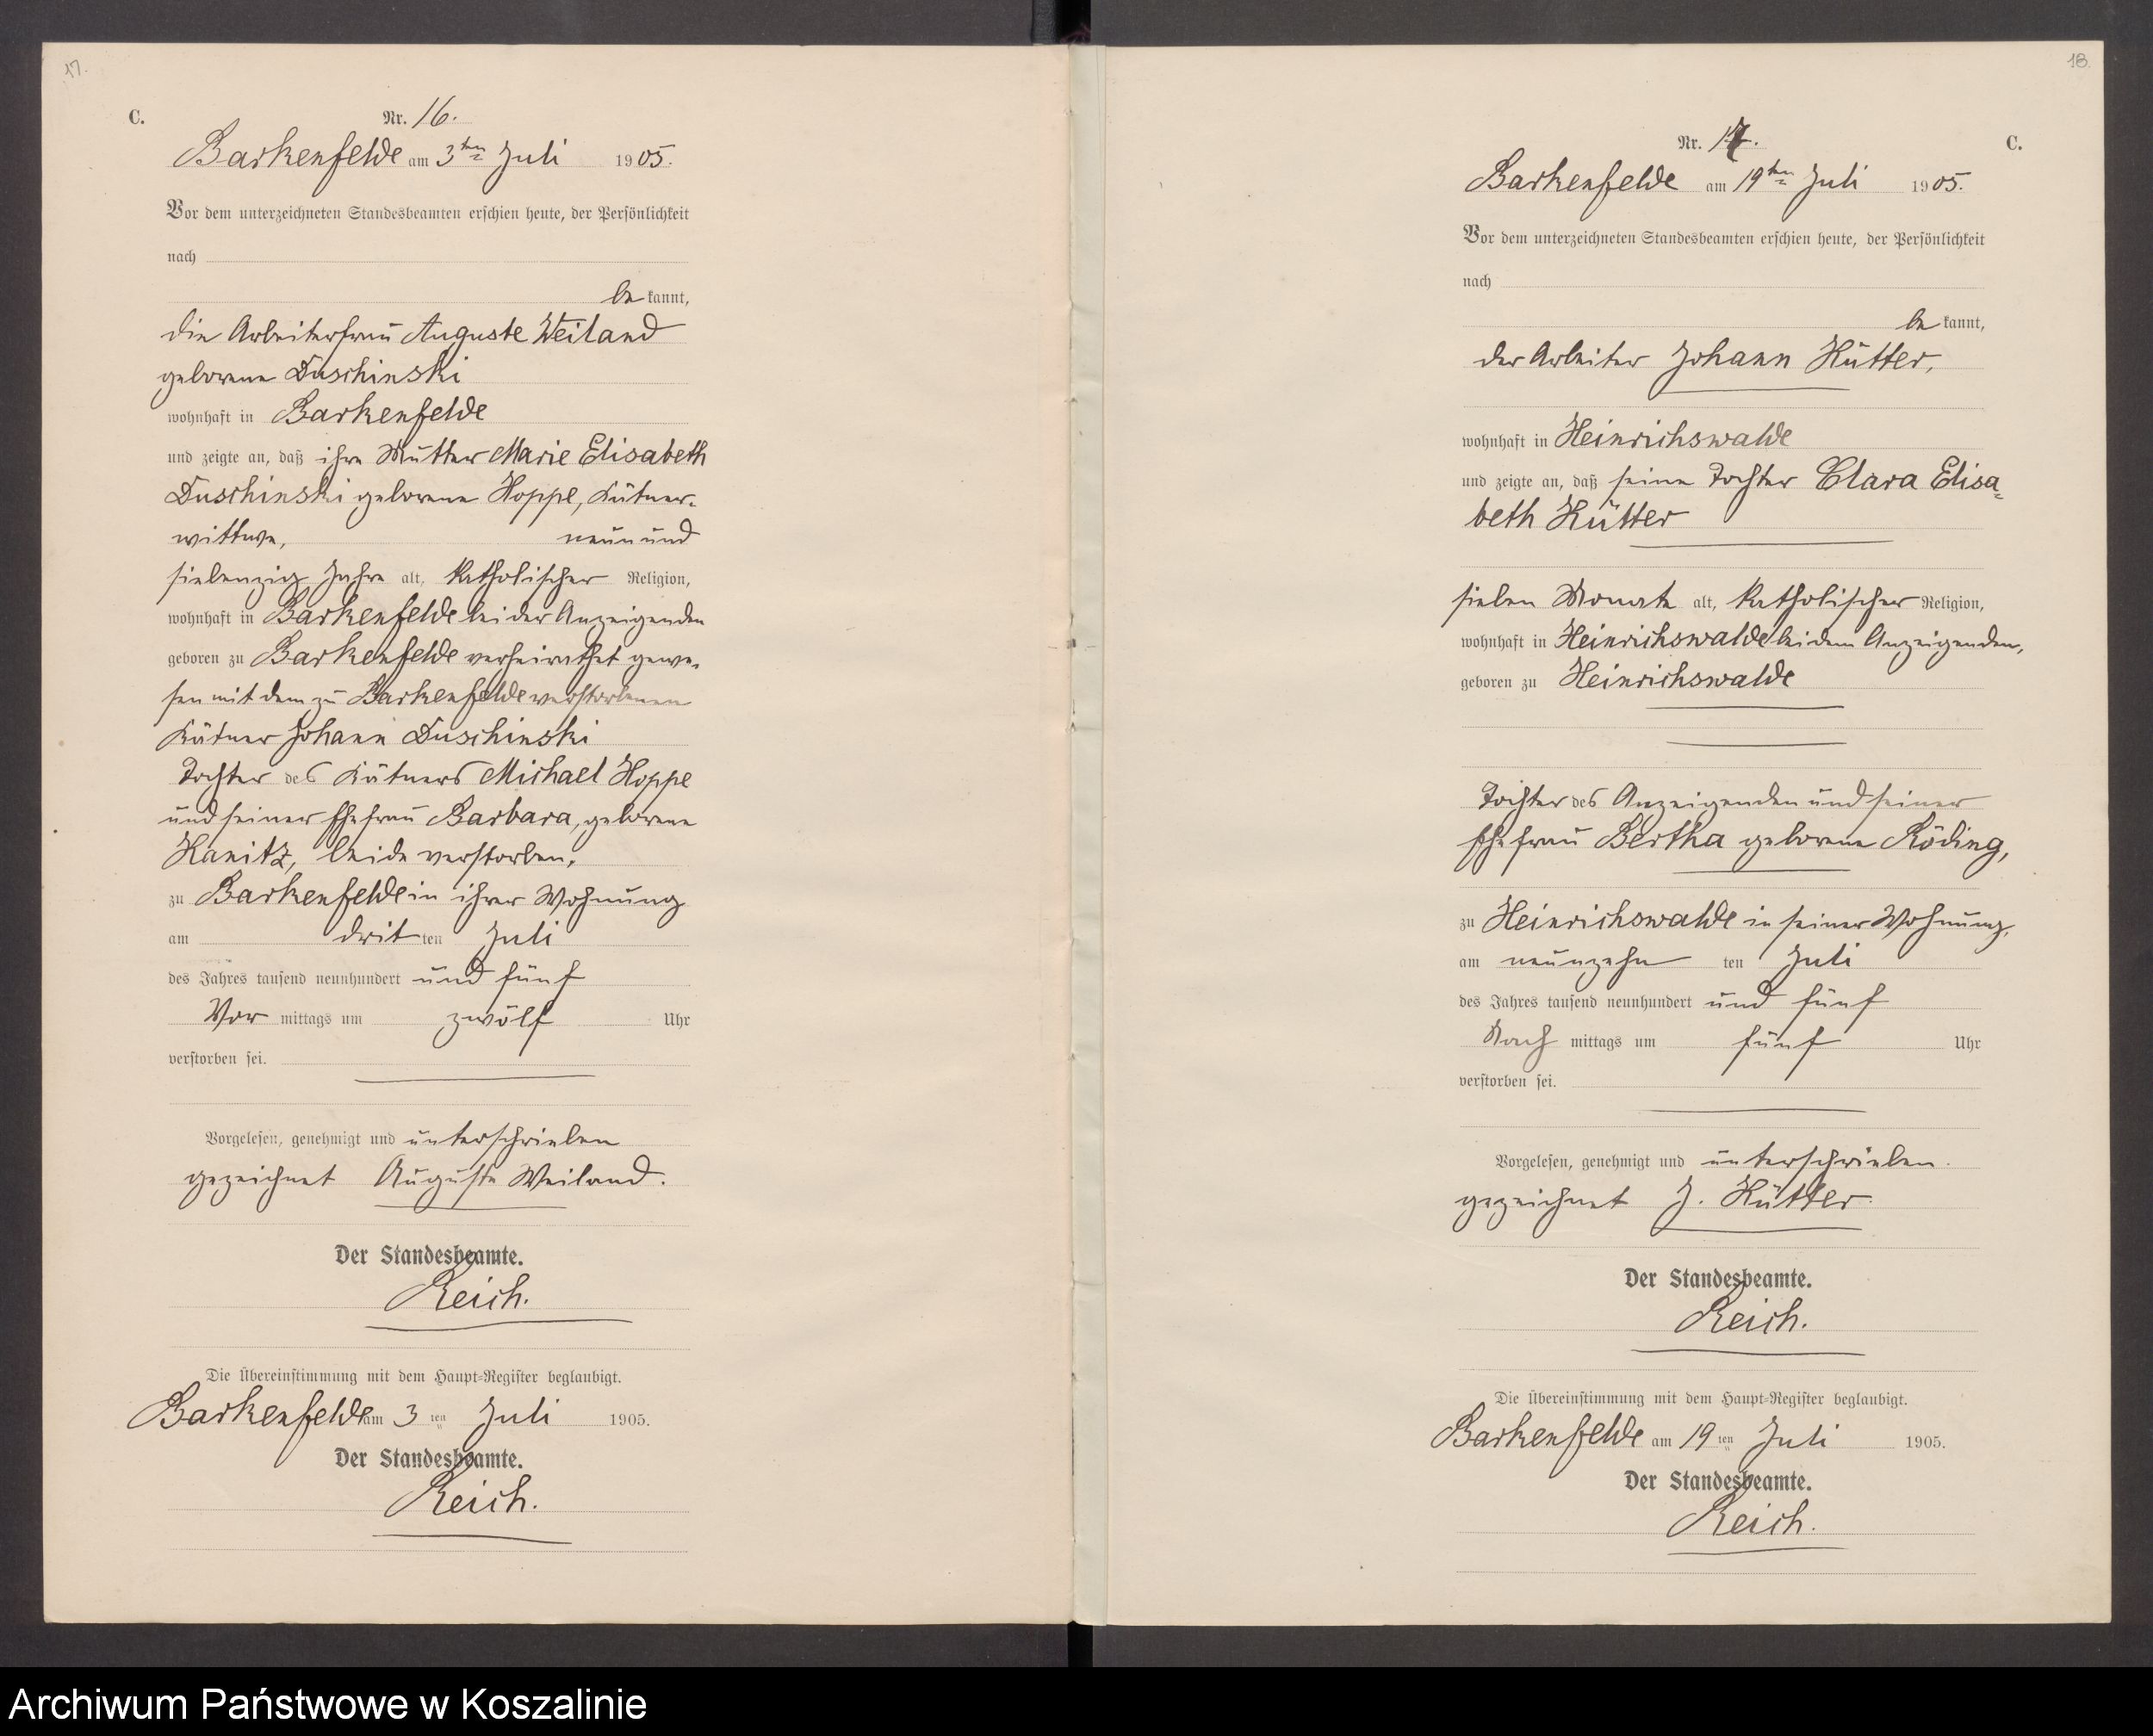 17.
C.
Nr. 16.
Barkenfelde am 3ten Juli 1905.
Vor dem unterzeichneten Standesbeamten erschien heute, der Persönlichkeit
nach
be kannt,
die Arbeiterfrau Auguste Weiland
geborene Duschinski
wohnhaft in Barkenfelde
und zeigte an, daß ihre Mutter Marie Elisabeth
Duschinski geborene Hoppe, Kätner-
wittwe, neunund
siebenzig Jahre alt, katholischer Religion,
wohnhaft in Barkenfelde bei der Anzeigenden
geboren zu Barkenfelde verheirathet gewe-
sen mit dem zu Barkenfelde verstorbenen
Kätner Johann Duschinski
Tochter des Kätners Michael Hoppe
und seiner Ehefrau Barbara, geborene
Kanitz, beide verstorben,
zu Barkenfelde in ihrer Wohnung
am drit ten Juli
des Jahres tausend neunhundert und fünf
Vor mittags um zwölf Uhr
verstorben sei.
Vorgelesen, genehmigt und unterschrieben
gezeichnet Auguste Weiland.
Der Standesbeamte.
Reich.
Die Übereinstimmung mit dem Haupt-Register beglaubigt.
Barkenfelde am 3 ten Juli 1905.
Der Standesbeamte.
Reich.
18.
Nr. 17.
C.
Barkenfelde am 19ten Juli 1905.
Vor dem unterzeichneten Standesbeamten erschien heute, der Persönlichkeit
nach
be kannt,
der Arbeiter Johann Hütter,
wohnhaft in Heinrichswalde
und zeigte an, daß seine Tochter Clara Elisa-
beth Hütter
sieben Monate alt, katholischer Religion,
wohnhaft in Heinrichswalde bei dem Anzeigenden,
geboren zu Heinrichswalde
Tochter des Anzeigenden und seiner
Ehefrau Bertha geborene Röding,
zu Heinrichswalde in seiner Wohnung,
am neunzehn ten Juli
des Jahres tausend neunhundert und fünf
Nach mittags um fünf Uhr
verstorben sei.
Vorgelesen, genehmigt und unterschrieben.
gezeichnet J. Hütter.
Der Standesbeamte.
Reich.
Die Übereinstimmung mit dem Haupt-Register beglaubigt.
Barkenfelde am 19 ten Juli 1905.
Der Standesbeamte.
Reich.
Archiwum Państwowe w Koszalinie